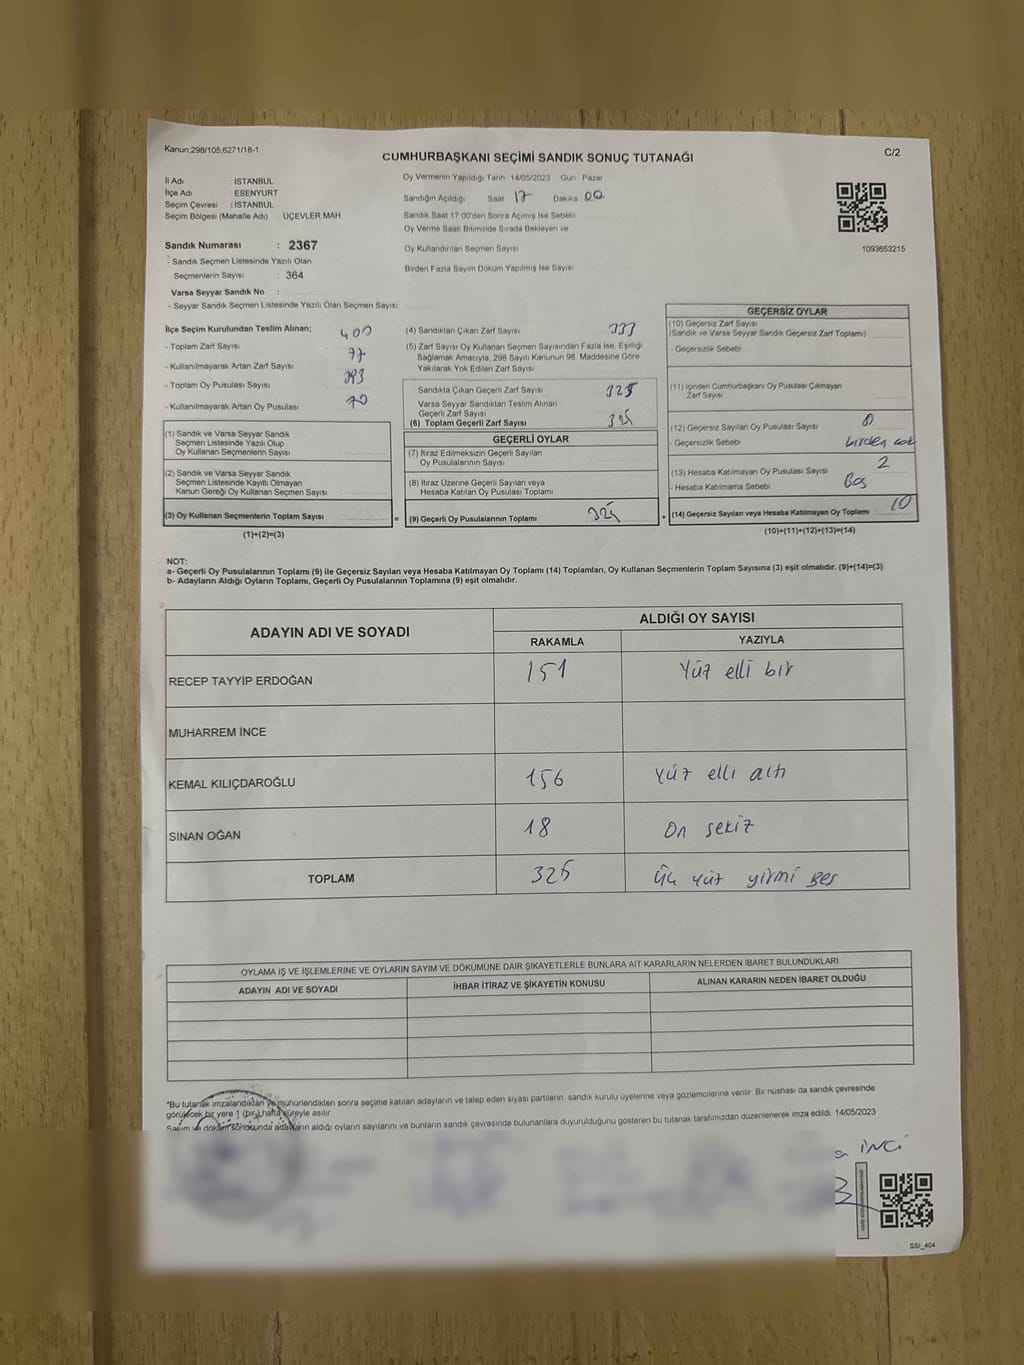 Kanun;298/105;6271/18-1
C/2
CUMHURBAŞKANI SEÇİMİ SANDIK SONUÇ TUTANAĞI
İl Adı : İSTANBUL
İlçe Adı : ESENYURT
Seçim Çevresi : İSTANBUL
Seçim Bölgesi (Mahalle Adı) ÜÇEVLER MAH
Sandık Numarası : 2367
Sandık Seçmen Listesinde Yazılı Olan
Seçmenlerin Sayısı : 364
Varsa Seyyar Sandık No :
- Seyyar Sandık Seçmen Listesinde Yazılı Olan Seçmen Sayısı:
Oy Vermenin Yapıldığı Tarih 14/05/2023 Gün Pazar
Sandığın Açıldığı Saat 17 Dakika 00
Sandık Saat 17 00'den Sonra Açılmış İse Sebebi
Oy Verme Saati Bitiminde Sırada Bekleyen ve
Oy Kullandırılan Seçmen Sayısı
Birden Fazla Sayım Döküm Yapılmış İse Sayısı
1093653215
İlçe Seçim Kurulundan Teslim Alınan; 400
- Toplam Zarf Sayısı 77
- Kullanılmayarak Artan Zarf Sayısı 393
- Toplam Oy Pusulası Sayısı
- Kullanılmayarak Artan Oy Pusulası 70
(1) Sandık ve Varsa Seyyar Sandık
Seçmen Listesinde Yazılı Olup
Oy Kullanan Seçmenlerin Sayısı
(2) Sandık ve Varsa Seyyar Sandık
Seçmen Listesinde Kayıtlı Olmayan
Kanun Gereği Oy Kullanan Seçmen Sayısı
(3) Oy Kullanan Seçmenlerin Toplam Sayısı
(1)+(2)=(3)
=
(4) Sandıktan Çıkan Zarf Sayısı 333
(5) Zarf Sayısı Oy Kullanan Seçmen Sayısından Fazla İse, Eşitliği
Sağlamak Amacıyla, 298 Sayılı Kanunun 98. Maddesine Göre
Yakılarak Yok Edilen Zarf Sayısı
Sandıkta Çıkan Geçerli Zarf Sayısı 325
Varsa Seyyar Sandıktan Teslim Alınan
Geçerli Zarf Sayısı
(6) Toplam Geçerli Zarf Sayısı 325
GEÇERLİ OYLAR
(7) İtiraz Edilmeksizin Geçerli Sayılan
Oy Pusulalarının Sayısı
(8) İtiraz Üzerine Geçerli Sayılan veya
Hesaba Katılan Oy Pusulası Toplamı
(9) Geçerli Oy Pusulalarının Toplamı 325
+
GEÇERSİZ OYLAR
(10) Geçersiz Zarf Sayısı
(Sandık ve Varsa Seyyar Sandık Geçersiz Zarf Toplamı)
- Geçersizlik Sebebi
(11) İçinden Cumhurbaşkanı Oy Pusulası Çıkmayan
Zarf Sayısı
(12) Geçersiz Sayılan Oy Pusulası Sayısı 8
- Geçersizlik Sebebi birden çok
(13) Hesaba Katılmayan Oy Pusulası Sayısı 2
- Hesaba Katılmama Sebebi Boş
(14) Geçersiz Sayılan veya Hesaba Katılmayan Oy Toplamı 10
(10)+(11)+(12)+(13)=(14)
NOT:
a- Geçerli Oy Pusulalarının Toplamı (9) ile Geçersiz Sayılan veya Hesaba Katılmayan Oy Toplamı (14) Toplamları, Oy Kullanan Seçmenlerin Toplam Sayısına (3) eşit olmalıdır. (9)+(14)=(3)
b- Adayların Aldığı Oyların Toplamı, Geçerli Oy Pusulalarının Toplamına (9) eşit olmalıdır.
ADAYIN ADI VE SOYADI
ALDIĞI OY SAYISI
RAKAMLA YAZIYLA
RECEP TAYYİP ERDOĞAN 151 Yüz elli bir
MUHARREM İNCE
KEMAL KILIÇDAROĞLU 156 Yüz elli altı
SİNAN OĞAN 18 On sekiz
TOPLAM 325 Üç yüz yirmi beş
OYLAMA İŞ VE İŞLEMLERİNE VE OYLARIN SAYIM VE DÖKÜMÜNE DAİR ŞİKAYETLERLE BUNLARA AİT KARARLARIN NELERDEN İBARET BULUNDUKLARI
ADAYIN ADI VE SOYADI İHBAR İTİRAZ VE ŞİKAYETİN KONUSU ALINAN KARARIN NEDEN İBARET OLDUĞU
*Bu tutanak imzalandıktan ve mühürlendikten sonra seçime katılan adayların ve talep eden siyasi partilerin sandık kurulu üyelerine veya gözlemcilerine verilir. Bir nüshası da sandık çevresinde
görülecek bir yere 1 (bir) hafta süreyle asılır.
Sayım ve döküm sonucunda adayların aldığı oyların sayılarını ve bunların sandık çevresinde bulunanlara duyurulduğunu gösteren bu tutanak tarafımızdan düzenlenerek imza edildi. 14/05/2023
İNCİ
SSI_404